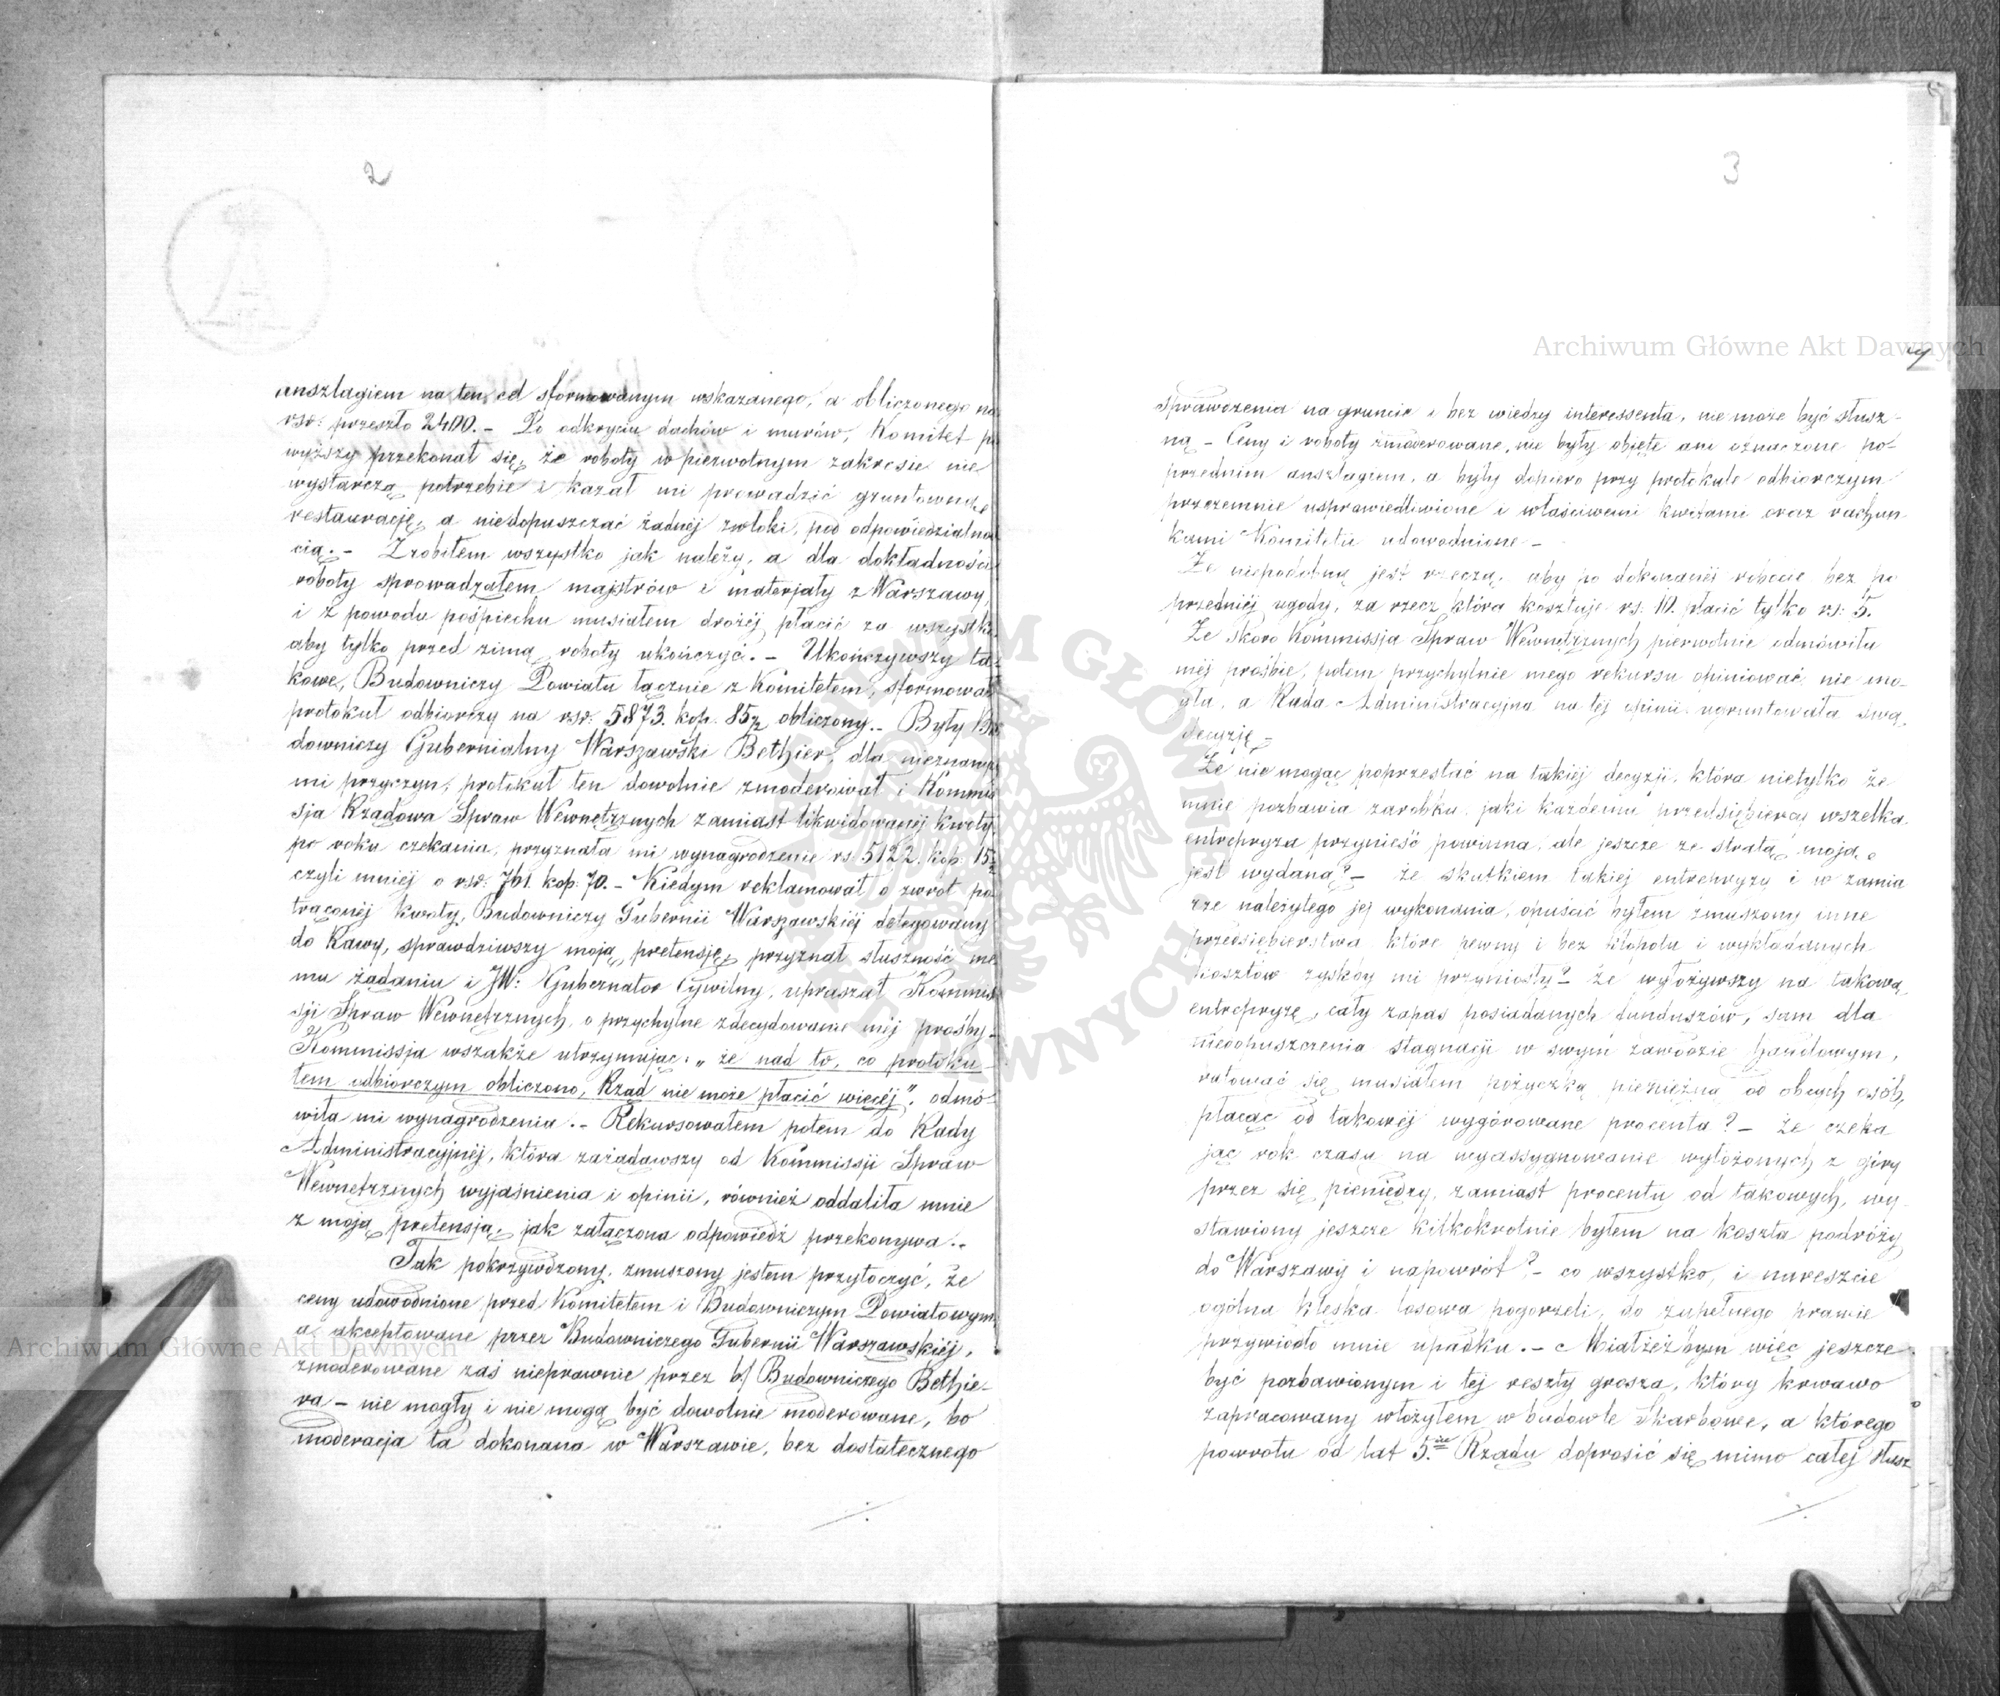 2
anszlagiem na ten cel sformowanym wskazanego, a obliczonego na
rsr: przeszło 2400. – Po odkryciu dachów i murów, Komitet po
wyższy przekonał się, że roboty w pierwotnym zakresie nie
wystarczą potrzebie i kazał mi prowadzić gruntowną
restaurację, a niedopuszczać żadnéj zwłoki, pod odpowiedzialnoś
cią. – Zrobiłem wszystko jak należy, a dla dokładności
roboty sprowadzałem majstrów i materjały z Warszawy,
i z powodu pośpiechu musiałem drożéj płacić za wszystko
aby tylko przed zimą roboty ukończyć. – Ukończywszy ta-
kowe, Budowniczy Powiatu łącznie z Komitetem, sformował
protokuł odbiorczy na rsr: 5873. kop. 85½ obliczony. – Były Bu
downiczy Gubernialny Warszawski Bethier, dla nieznanych
mi przyczyn, protokuł ten dowolnie zmoderował i Kommis
sja Rządowa Spraw Wewnętrznych zamiast likwidowanéj kwoty,
po roku czekania, przyznała mi wynagrodzenie rs: 5122. kop: 15½
czyli mniéj o rsr: 761. kop: 70. – Kiedym reklamował o zwrot po
trąconéj kwoty, Budowniczy Gubernii Warszawskiéj delegowany
do Rawy, sprawdziwszy moją pretensję, przyznał słuszność me
mu żądaniu i JW: Gubernator Cywilny, upraszał Kommis
sji Spraw Wewnętrznych, o przychylne zdecydowanie méj prośby –
Kommissja wszakże utrzymując: „że nad to, co protoku-
łem odbiorczym obliczono, Rząd nie może płacić więcéj”, odmó-
wiła mi wynagrodzenia. – Rekursowałem potem do Rady
Administracyjnéj, która zażądawszy od Kommissji Spraw
Wewnętrznych wyjaśnienia i opinii, również oddaliła mnie
z moją pretensją, jak załączona odpowiedź przekonywa. –
Tak pokrzywdzony, zmuszony jestem przytoczyć, że
ceny udowodnione przed Komitetem i Budowniczym Powiatowym
a akceptowane przez Budowniczego Gubernii Warszawskiéj,
zmoderowane zaś nieprawnie przez b/ Budowniczego Bethie-
ra – nie mogły i nie mogą być dowolnie moderowane, bo
moderacja ta dokonana w Warszawie, bez dostatecznego
3
sprawdzenia na gruncie i bez wiedzy interessenta, nie może być słusz-
ną – Ceny i roboty zmoderowane, nie były objęte ani oznaczone po-
przednim anszlagiem, a były dopiero przy protokule odbiorczym
przezemnie usprawiedliwione i właściwemi kwitami oraz rachun
kami Komitetu udowodnione –
Że niepodobną jest rzeczą, aby po dokonanéj robocie bez po
przedniéj ugody, za rzecz która kosztuje rs: 10. płacić tylko rs: 5.
Że skoro Kommissja Spraw Wewnętrznych pierwotnie odmówiła
méj prośbie, potem przychylnie mego rekursu opiniować nie mo-
gła, a Rada Administracyjna na téj opinii ugruntowała swą
decyzję –
Że nie mogąc poprzestać na takiéj decyzji, która nietylko że
mnie pozbawia zarobku, jaki każdemu przedsiębiercy wszelka
entrepryza przynieść powinna, ale jeszcze ze stratą moją
jest wydaną? – że skutkiem takiéj entrepryzy i w zamia
rze należytego jéj wykonania, opuścić byłem zmuszony inne
przedsiębierstwa, które pewny i bez kłopotu i wykładanych
kosztów zyskby mi przyniosły? – że wyłożywszy na takową
entrepryzę, cały zapas posiadanych funduszów, sam dla
niedopuszczenia stagnacji w swym zawodzie handlowym,
ratować się musiałem pożyczką pieniężną od obcych osób,
płacąc od takowéj wygórowane procenta? – że czeka
jąc rok czasu na wyassygnowanie wyłożonych z góry
przez się pieniędzy, zamiast procentu od takowych, wy-
stawiony jeszcze kilkokrotnie byłem na koszta podróży
do Warszawy i napowrót? – co wszystko, i nareszcie
ogólna klęska losowa pogorzeli, do zupełnego prawie
przywiodło mnie upadku. – Miałżeżbym więc jeszcze
być pozbawionym i téj reszty grosza, który krwawo
zapracowany włożyłem w budowle Skarbowe, a którego
powrotu od lat 5. Rządu doprosić się mimo całéj słusz
Archiwum Główne Akt Dawnych
Archiwum Główne Akt Dawnych